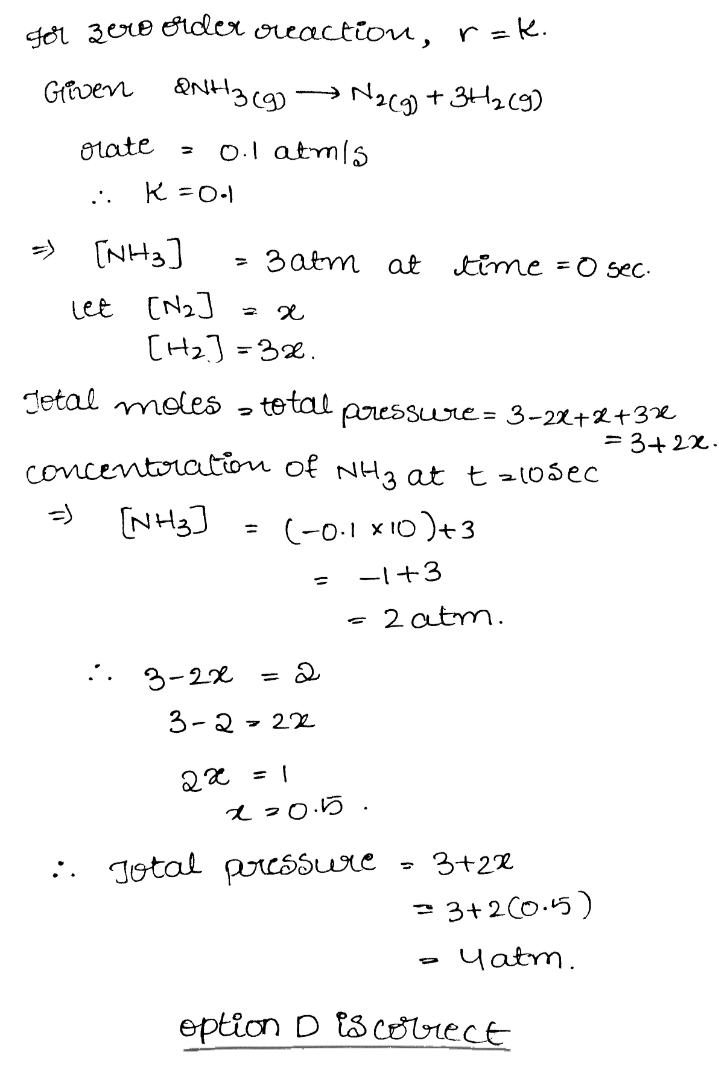 For zero order reaction, r = K.
Given 2NH3(g) → N2(g) + 3H2(g)
rate = 0.1 atm/s
∴ K = 0.1
⇒ [NH3] = 3 atm at time = 0 sec.
let [N2] = x
[H2] = 3x.
Total moles = total pressure = 3-2x+x+3x
= 3+2x.
concentration of NH3 at t = 10 sec
⇒ [NH3] = (-0.1 × 10)+3
= -1+3
= 2 atm.
∴ 3-2x = 2
3-2 = 2x
2x = 1
x = 0.5.
∴ Total pressure = 3+2x
= 3+2(0.5)
= 4 atm.
option D is correct